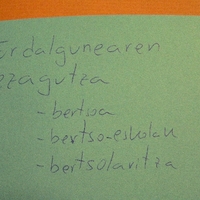 Erdalgunearen
ezagutza
- bertsoa
- bertso-eskolak
- bertsolaritza